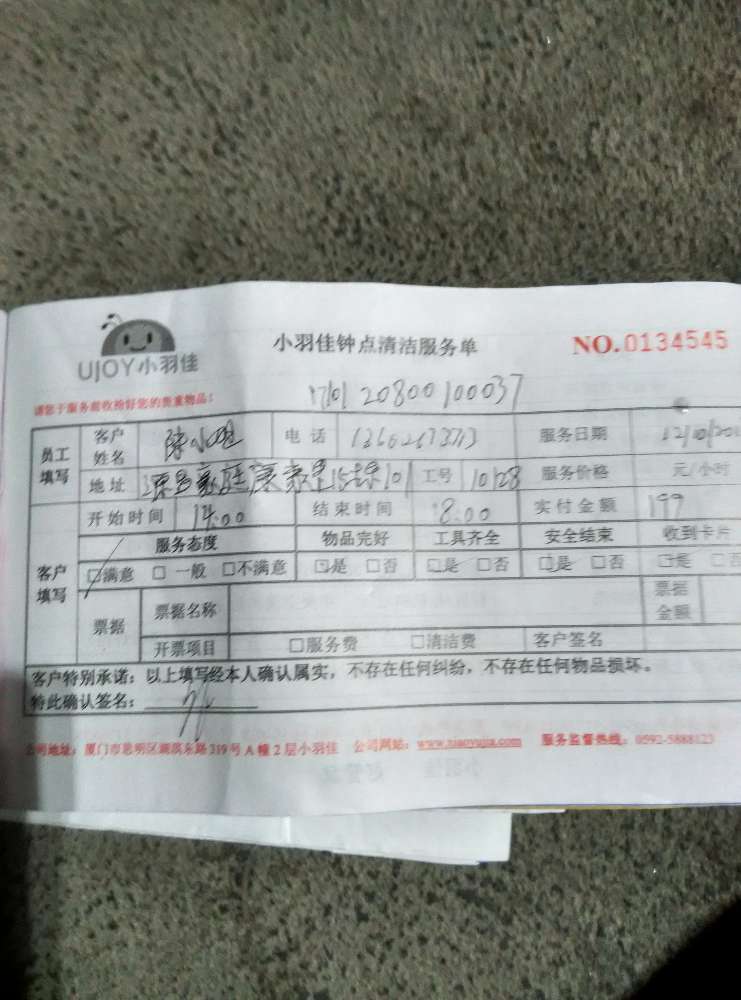 UJOY小羽佳
小羽佳钟点清洁服务单
NO.0134545
请您于服务前收拾好您的贵重物品!
170120800100037
员工填写
客户姓名
电话
服务日期 12/10/201
地址
工号 1028
服务价格 元/小时
客户填写
开始时间 14:00
结束时间 18:00
实付金额 199
服务态度 物品完好 工具齐全 安全结束 收到卡片
□满意 □一般 □不满意 □是 □否 □是 □否 □是 □否 □是 □否
票据
票据名称
票据金额
开票项目 □服务费 □清洁费 客户签名
客户特别承诺：以上填写经本人确认属实，不存在任何纠纷，不存在任何物品损坏。
特此确认签名：
公司地址：厦门市思明区湖滨东路319号A幢2层小羽佳 公司网站：www.xiaoyujia.com 服务监督热线：0592-5888123